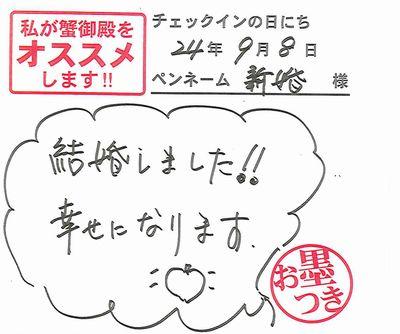 私が蟹御殿を
オススメ
します!!
チェックインの日にち
24年 9月 8日
ペンネーム 新婚 様
結婚しました!!
幸せになります.
お墨つき